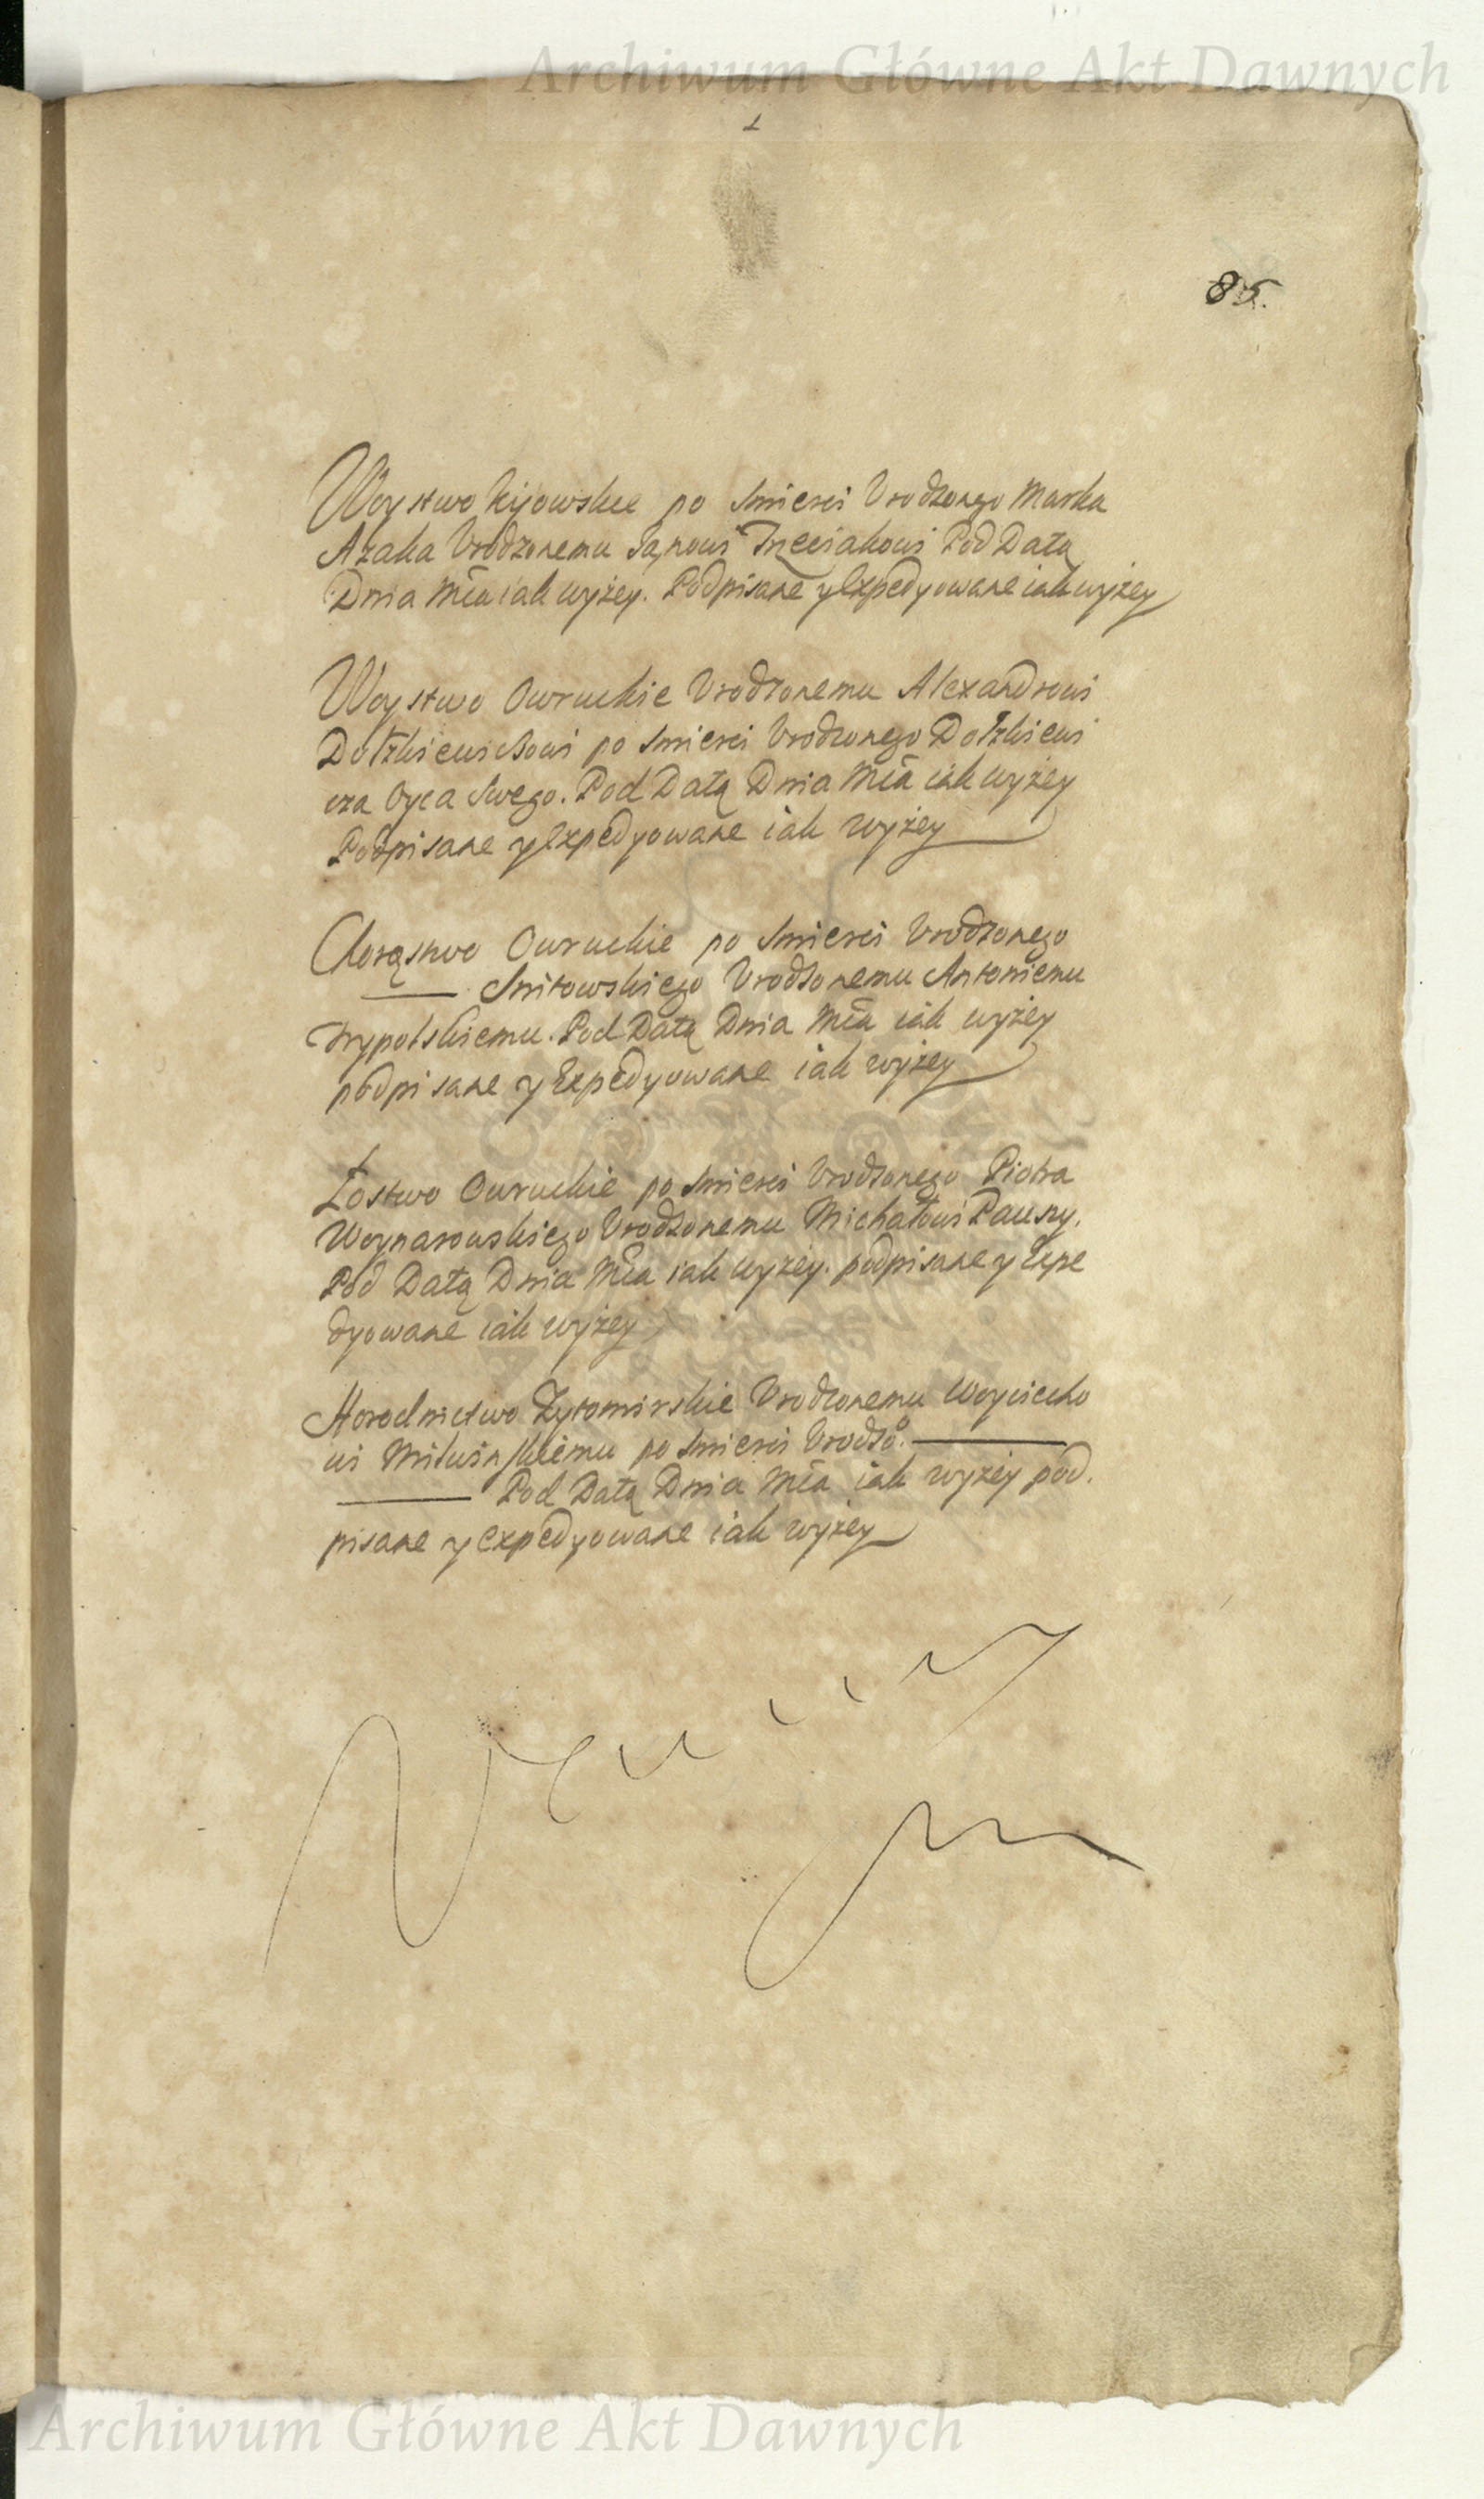 Archiwum Główne Akt Dawnych
1
85.
Woystwo Kijowskie po Smierci Urodzonego Marka
Azaka Urodzonemu Janowi Trzeciakowi Pod Datą
Dnia Mca iak wyżey. Podpisane y Expedyowane iak wyżey
Woystwo Owruckie Urodzonemu Alexandrowi
po Smierci Urodzonego
cza Oyca Swego. Pod Datą Dnia Mca iak wyżey
Podpisane y Expedyowane iak wyżey
Chorąstwo Owruckie po Smierci Urodzonego
Snitowskiego Urodzonemu Antoniemu
Trypolskiemu. Pod Datą Dnia Mca iak wyżey
podpisane y Expedyowane iak wyżey
Łostwo Owruckie po Smierci Urodzonego Piotra
Woynarowskiego Urodzonemu Michałowi Pauszy.
Pod Datą Dnia Mca iak wyżey. podpisane y Expe
dyowane iak wyżey
Horodnictwo Żytomirskie Urodzonemu Woyciecho
wi po Smierci Urodzo.
Pod Datą Dnia Mca iak wyżey pod.
pisane y expedyowane iak wyżey
Archiwum Główne Akt Dawnych